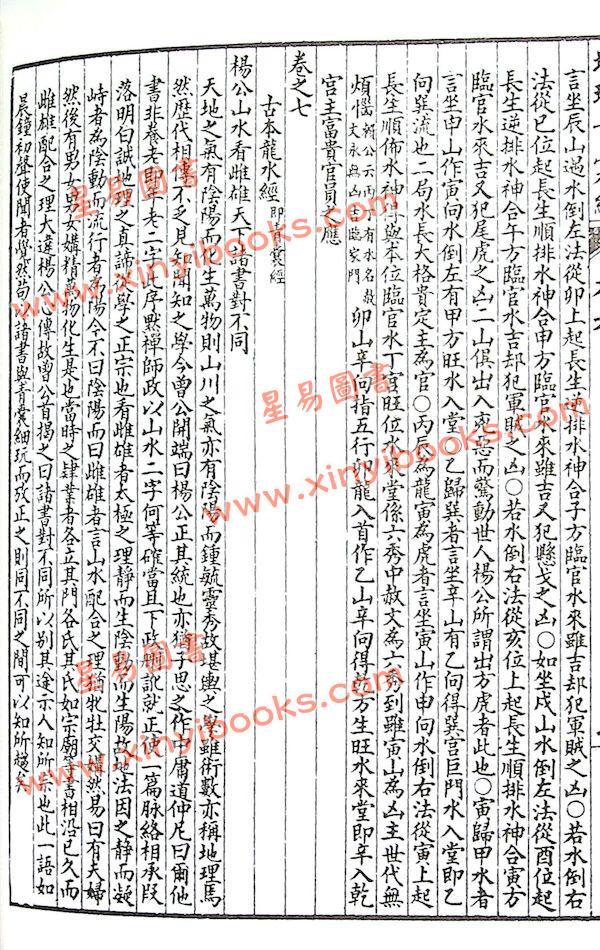 言坐辰山過水倒左法從卯上起長生逆排水神合子方臨官水來雖吉却犯軍賊之凶〇若水倒右
法從巳位起長生順排水神合申方臨官水來雖吉又犯懸戈之凶〇如坐戌山水倒左法從酉位起
長生逆排水神合午方臨官水吉却犯軍賊之凶〇若水倒右法從亥位上起長生順排水神合寅方
臨官水來吉又犯尾虎之凶二山俱出入兇惡而驚動世人楊公所謂出方虎者此也〇寅歸甲水者
言坐申山作寅向水倒左有甲方旺水入堂乙歸巽者言坐辛山有乙向得巽宮巨門水入堂即乙
向巽流也二局水長大格貴定主為官〇丙辰為龍寅為虎者言坐寅山作申向水倒右法從寅上起
長生順佈水神得與本位臨官水丁官旺位水來堂係六秀中赦文為六秀到雖寅山為凶主世代無
煩惱 賴公云丙丁有水名赦文永無凶吉臨家門 卯山辛向指五行卯龍入首作乙山辛向得乾方生旺水來堂即辛入乾
宮主富貴官員之應
卷之七
古本龍水經 即青囊經
楊公山水看雌雄天下諸書對不同
天地之氣有陰陽而化生萬物則山川之氣亦有陰陽而鍾毓靈秀故堪輿之學雖術數亦稱地理焉
然歷代相書不乏見知聞知之學今曾公開端曰楊公正其統也亦猶子思之作中庸道仲尼曰爾他
書非養老即早老二字此序默禪師政以山水二字何等確當且下政刪訛就正使一篇脉絡相承段
落明白誠地理之真諦從學之正宗也看雌雄者太極之理靜而生陰動而生陽故地法因之靜而凝
峙者為陰動而流行者為陽今不曰陰陽而曰雌雄者言山水配合之理猶牝牡交媾然易曰有夫婦
然後有男女男女媾精萬物化生是也當時之肄業者各立其門各氏其氏如宗廟等書相沿已久而
雌雄配合之理大違楊公心傳故曾公首揭之曰諸書對不同所以別其途示人知所宗也此一語如
晨鐘初聲使聞者覺然苟以諸書與青囊細玩而攷正之則同不同之間可以知所趨矣
星易圖書
www.xinyibooks.com
星易圖書
www.xinyibooks.com
星易圖書
www.xinyibooks.com
星易圖書
www.xinyibooks.com